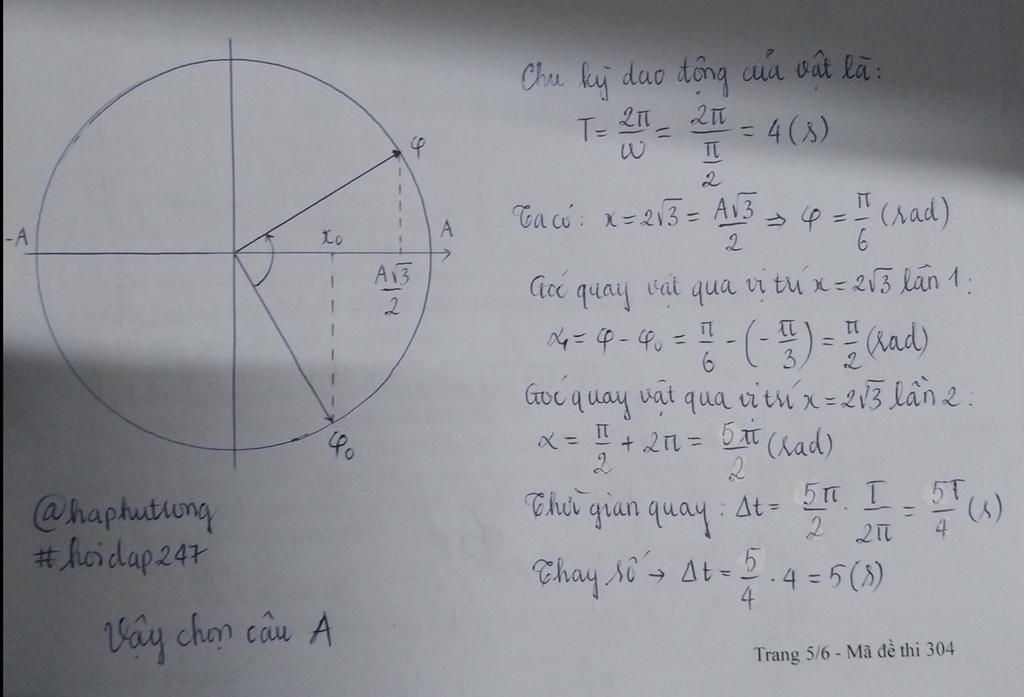 Chu kỳ dao động của vật là:
T = 2π/ω = 2π/(π/2) = 4 (s)
Ta có: x = 2√3 = A√3/2 ⇒ φ = π/6 (rad)
Góc quay vật qua vị trí x = 2√3 lần 1:
α₁ = φ - φ₀ = π/6 - (-π/3) = π/2 (rad)
Góc quay vật qua vị trí x = 2√3 lần 2:
α = π/2 + 2π = 5π/2 (rad)
Thời gian quay: Δt = 5π/2 . T/2π = 5T/4 (s)
Thay số → Δt = 5/4 . 4 = 5 (s)
φ
-A
x₀
A
A√3/2
φ₀
@haphutrong
#hoidap247
Vậy chọn câu A
Trang 5/6 - Mã đề thi 304